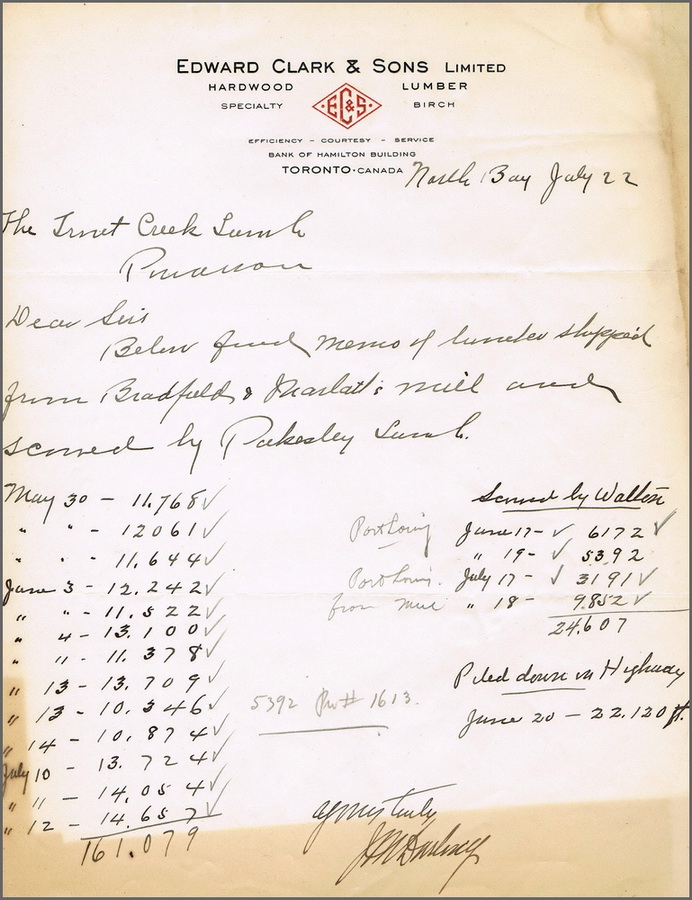 EDWARD CLARK & SONS LIMITED
HARDWOOD LUMBER
SPECIALTY BIRCH
E C & S
EFFICIENCY - COURTESY - SERVICE
BANK OF HAMILTON BUILDING
TORONTO · CANADA
North Bay July 22
The Trout Creek
Dear Sirs
Below find Memo of lumber shipped
from Bradfields & mill and
scowed by Pakesley Lumb.
May 30 - 11.768 ✓
" " - 12061 ✓
" " - 11.644 ✓
June 3 - 12.242 ✓
" " - 11.522 ✓
" 4 - 13.100 ✓
" " - 11.378 ✓
" 13 - 13.709 ✓
" 13 - 10.346 ✓
" 14 - 10.874 ✓
July 10 - 13.724 ✓
" 11 - 14.054 ✓
" 12 - 14.657 ✓
161.079
Scowed by Walton
Port Loring June 17 - ✓ 6172 ✓
" 19 - ✓ 5392
Port Loring. July 17 - ✓ 3191 ✓
from mill " 18 - 9.852 ✓
24.607
Piled down on Highway
June 20 - 22.120 ft.
5392 # 1613.
yours truly